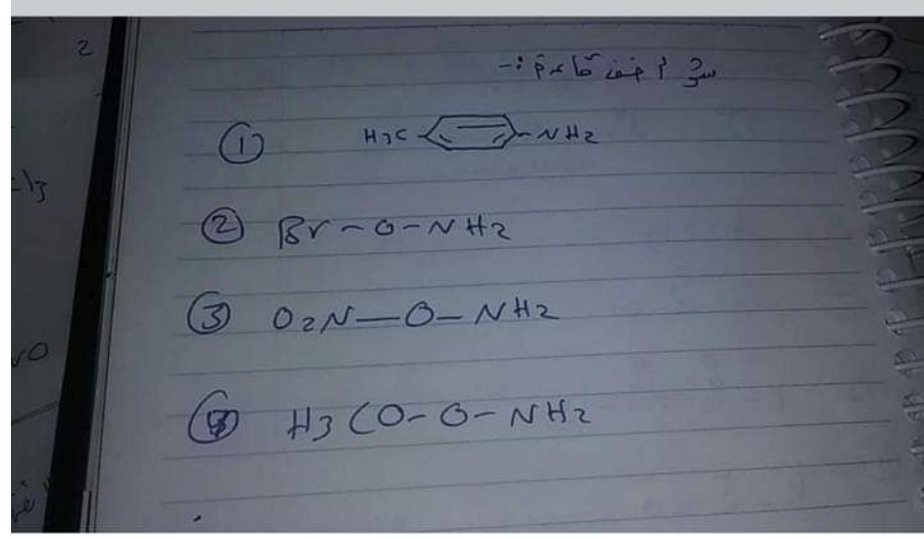 2
س/ اضعف قاعدة :-
① H3C-NH2
② Br-O-NH2
③ O2N-O-NH2
④ H3CO-O-NH2